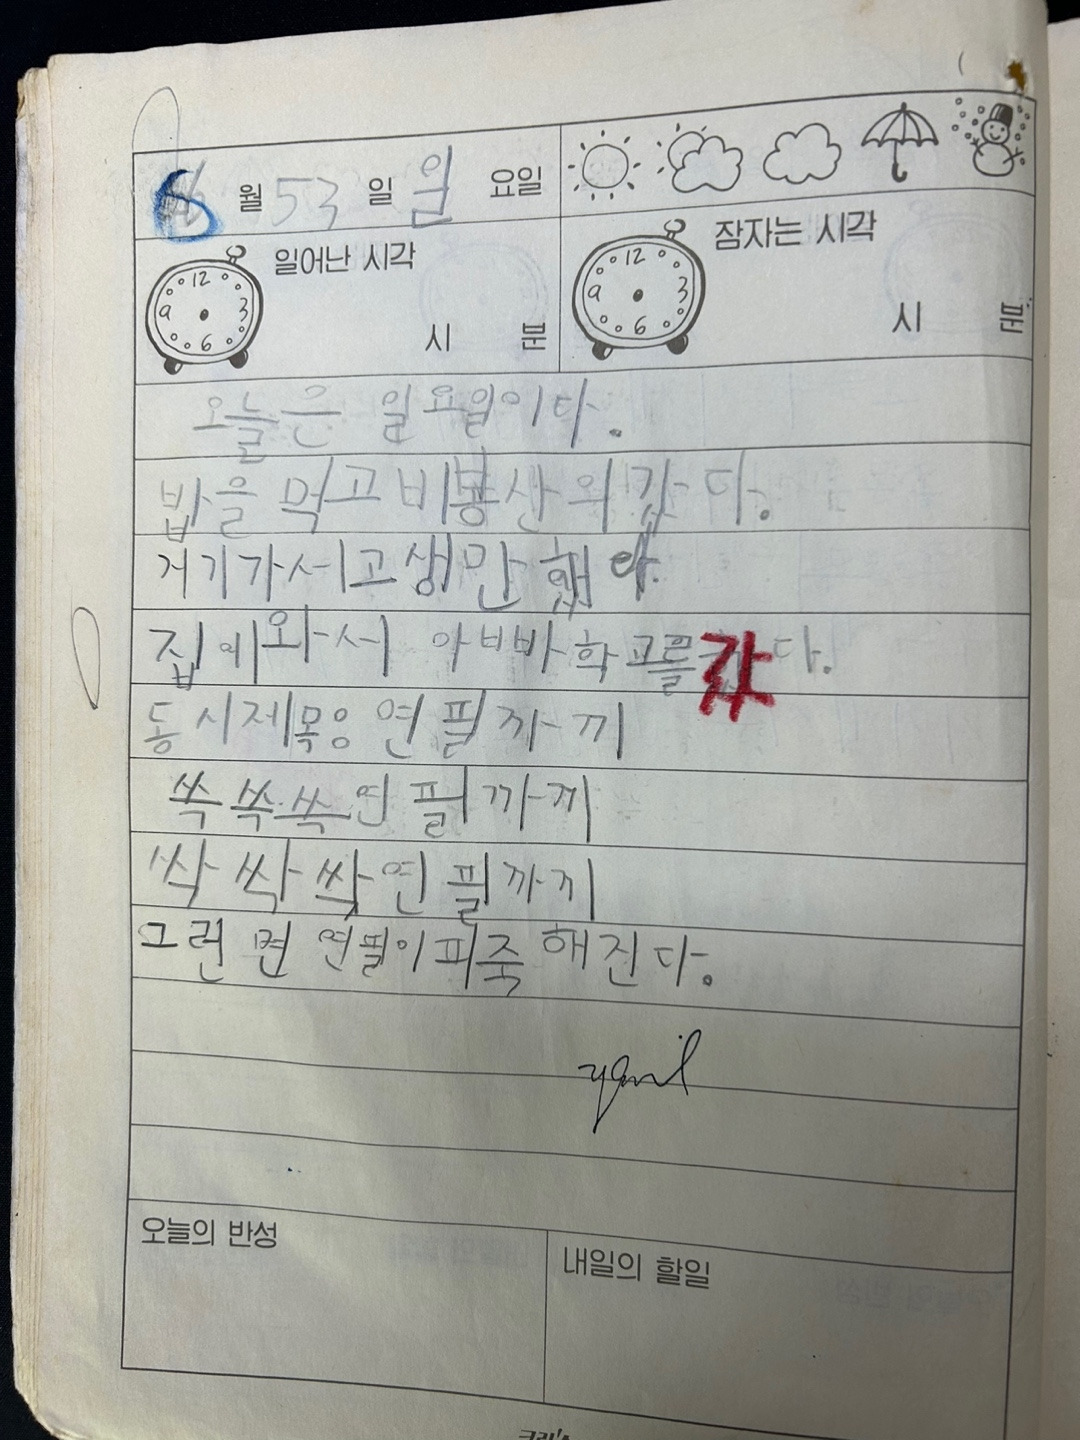 6월 53일 일요일
일어난 시각
12 3 6 9
시 분
잠자는 시각
12 3 6 9
시 분
오늘은 일요일이다.
밥을 먹고 비봉산의갔다.
거기가서고생만했다.
집에와서 아빠바학교를갔다.
동시제목응연필까끼
쓱쓱쓱연필까끼
싹싹싹연필까끼
그런면 연필이피죽해진다.
오늘의 반성
내일의 할일